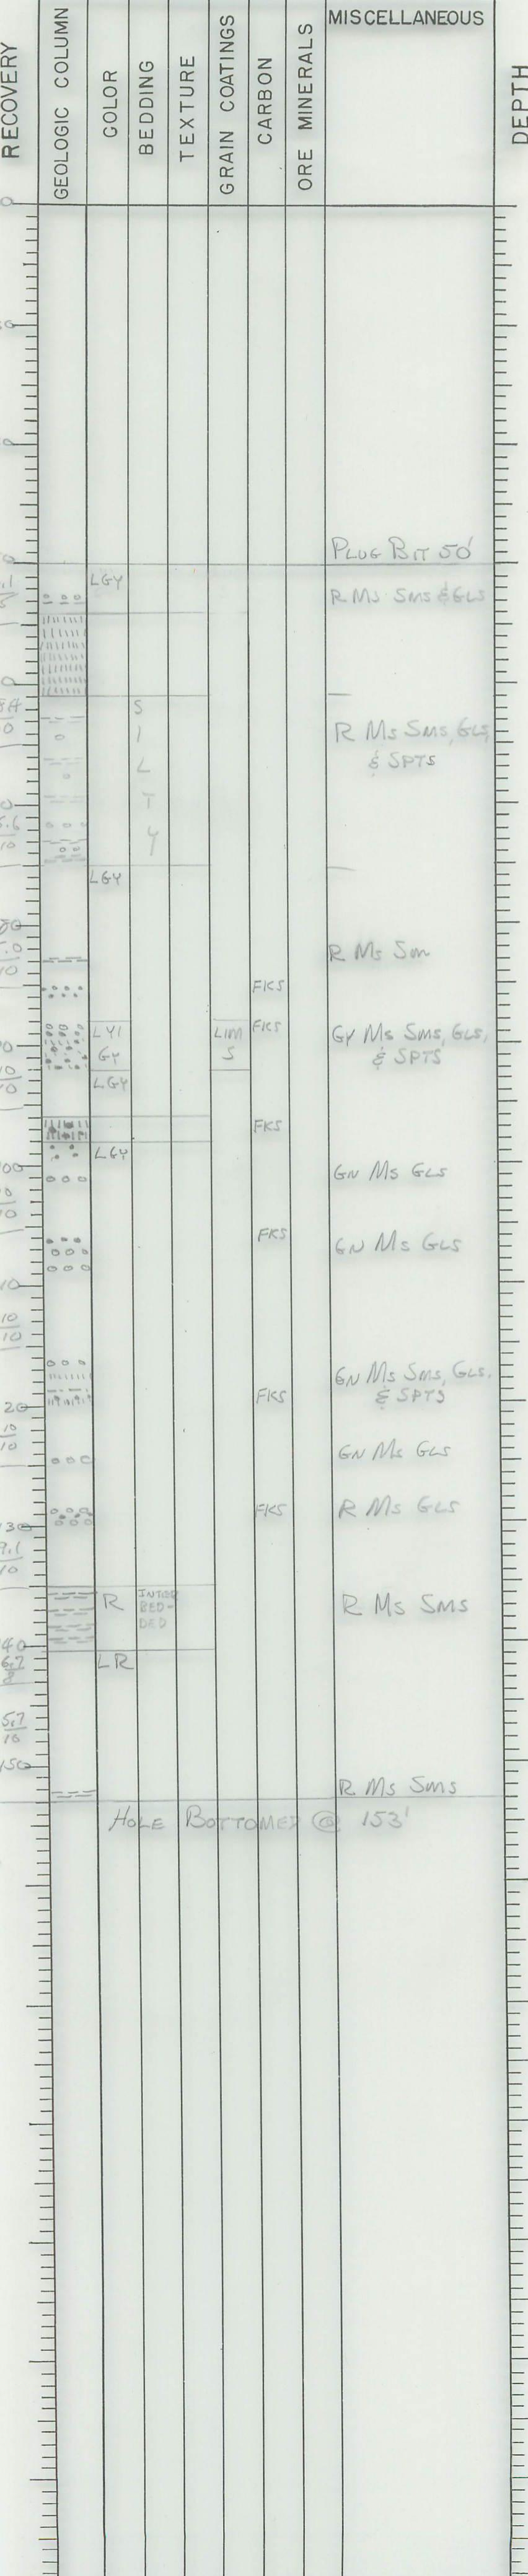 RECOVERY
GEOLOGIC COLUMN
COLOR
BEDDING
TEXTURE
GRAIN COATINGS
CARBON
ORE MINERALS
MISCELLANEOUS
DEPTH
PLUG BIT 50'
LGY
R Ms Sms & GLS
S
I
L
T
Y
R Ms Sms, GLS,
& SPTS
LGY
R Ms Sm
FKS
LYI
GY
LIM
S
FKS
GY Ms Sms, GLS,
& SPTS
LGY
FKS
LGY
GN Ms GLS
FKS
GN Ms GLS
10
10
GN Ms Sms, GLS.
& SPTS
FKS
20
10
10
GN Ms GLS
FKS
R Ms GLS
30
9.1
10
R
INTER
BED-
DED
R Ms Sms
40
6.7
8
LR
5.7
10
150
R Ms Sms
HOLE BOTTOMED @ 153'